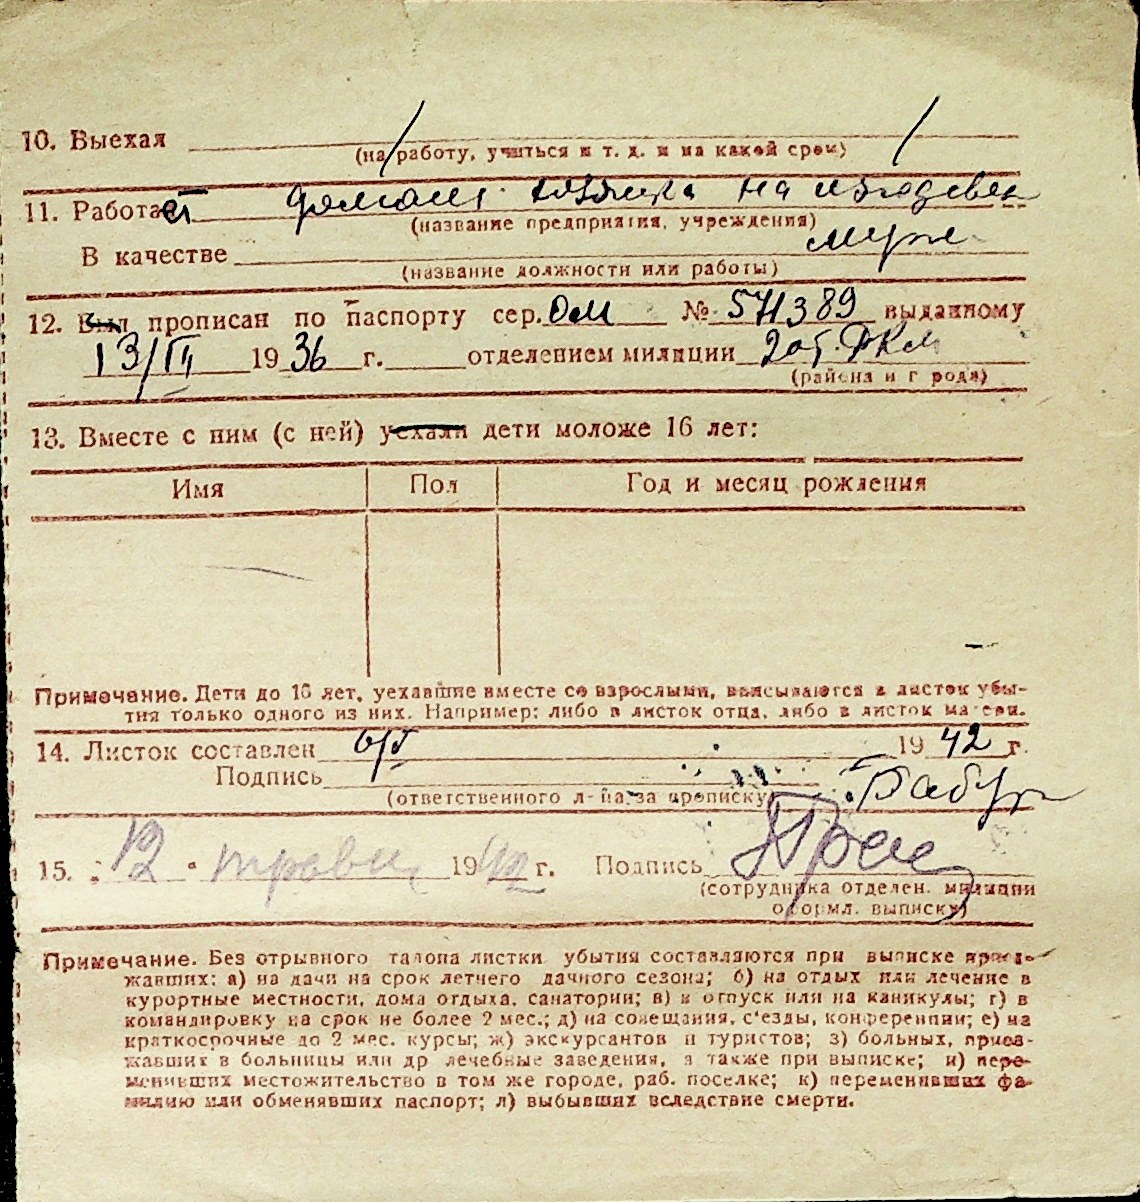 10. Выехал
(на работу, учиться и т. д. и на какой срок)
11. Работает
(название предприятия, учреждения)
В качестве
(название должности или работы)
12. Был прописан по паспорту сер. ОМ № 571389 выданному
13/III 1936 г. отделением милиции 2 от. РКМ
(района и города)
13. Вместе с ним (с ней) уехали дети моложе 16 лет:
Имя Пол Год и месяц рождения
Примечание. Дети до 16 лет, уехавшие вместе со взрослыми, вписываются в листок убы-
тия только одного из них. Например: либо в листок отца, либо в листок матери.
14. Листок составлен 1942 г.
Подпись
(ответственного л-ца за прописку)
15. 12 травня 1942 г. Подпись
(сотрудника отделен. милиции
оформл. выписку)
Примечание. Без отрывного талона листки убытия составляются при выписке приез-
жавших: а) на дачи на срок летнего дачного сезона; б) на отдых или лечение в
курортные местности, дома отдыха, санатории; в) в отпуск или на каникулы; г) в
командировку на срок не более 2 мес.; д) на совещания, с'езды, конференции; е) на
краткосрочные до 2 мес. курсы; ж) экскурсантов и туристов; з) больных, приез-
жавших в больницы или др лечебные заведения, а также при выписке; и) пере-
менивших местожительство в том же городе, раб. поселке; к) переменивших фа-
милию или обменявших паспорт; л) выбывших вследствие смерти.